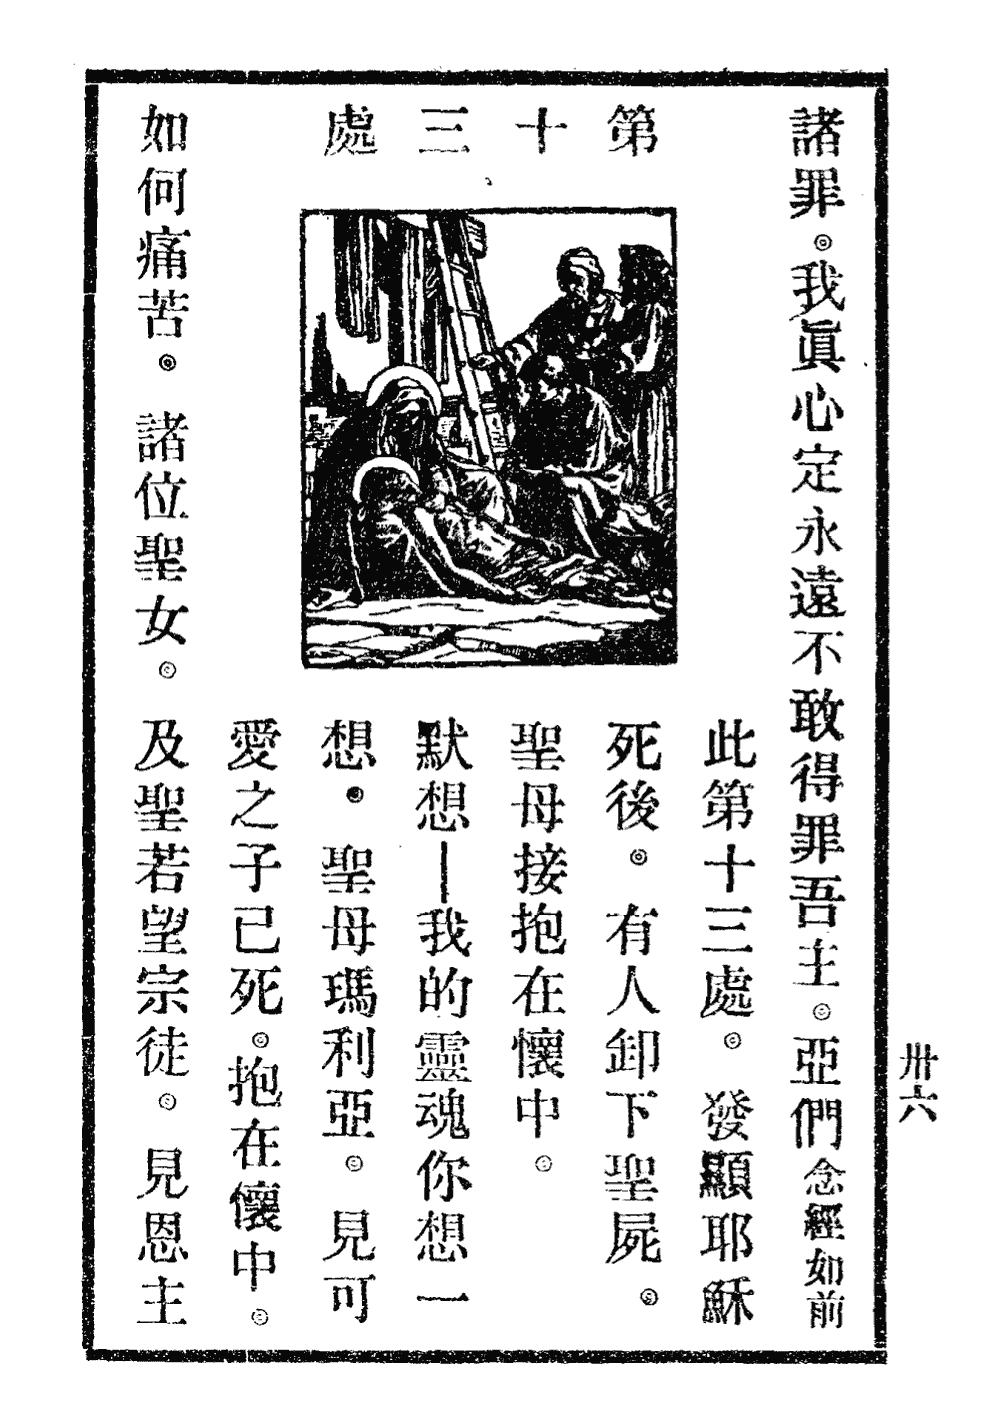 諸罪。我眞心定永遠不敢得罪吾主。亞們 念經如前
第十三處
此第十三處。發顯耶穌
死後。有人卸下聖屍。
聖母接抱在懷中。
默想—我的靈魂你想一
想。聖母瑪利亞。見可
愛之子已死。抱在懷中。
如何痛苦。諸位聖女。及聖若望宗徒。見恩主
卅六